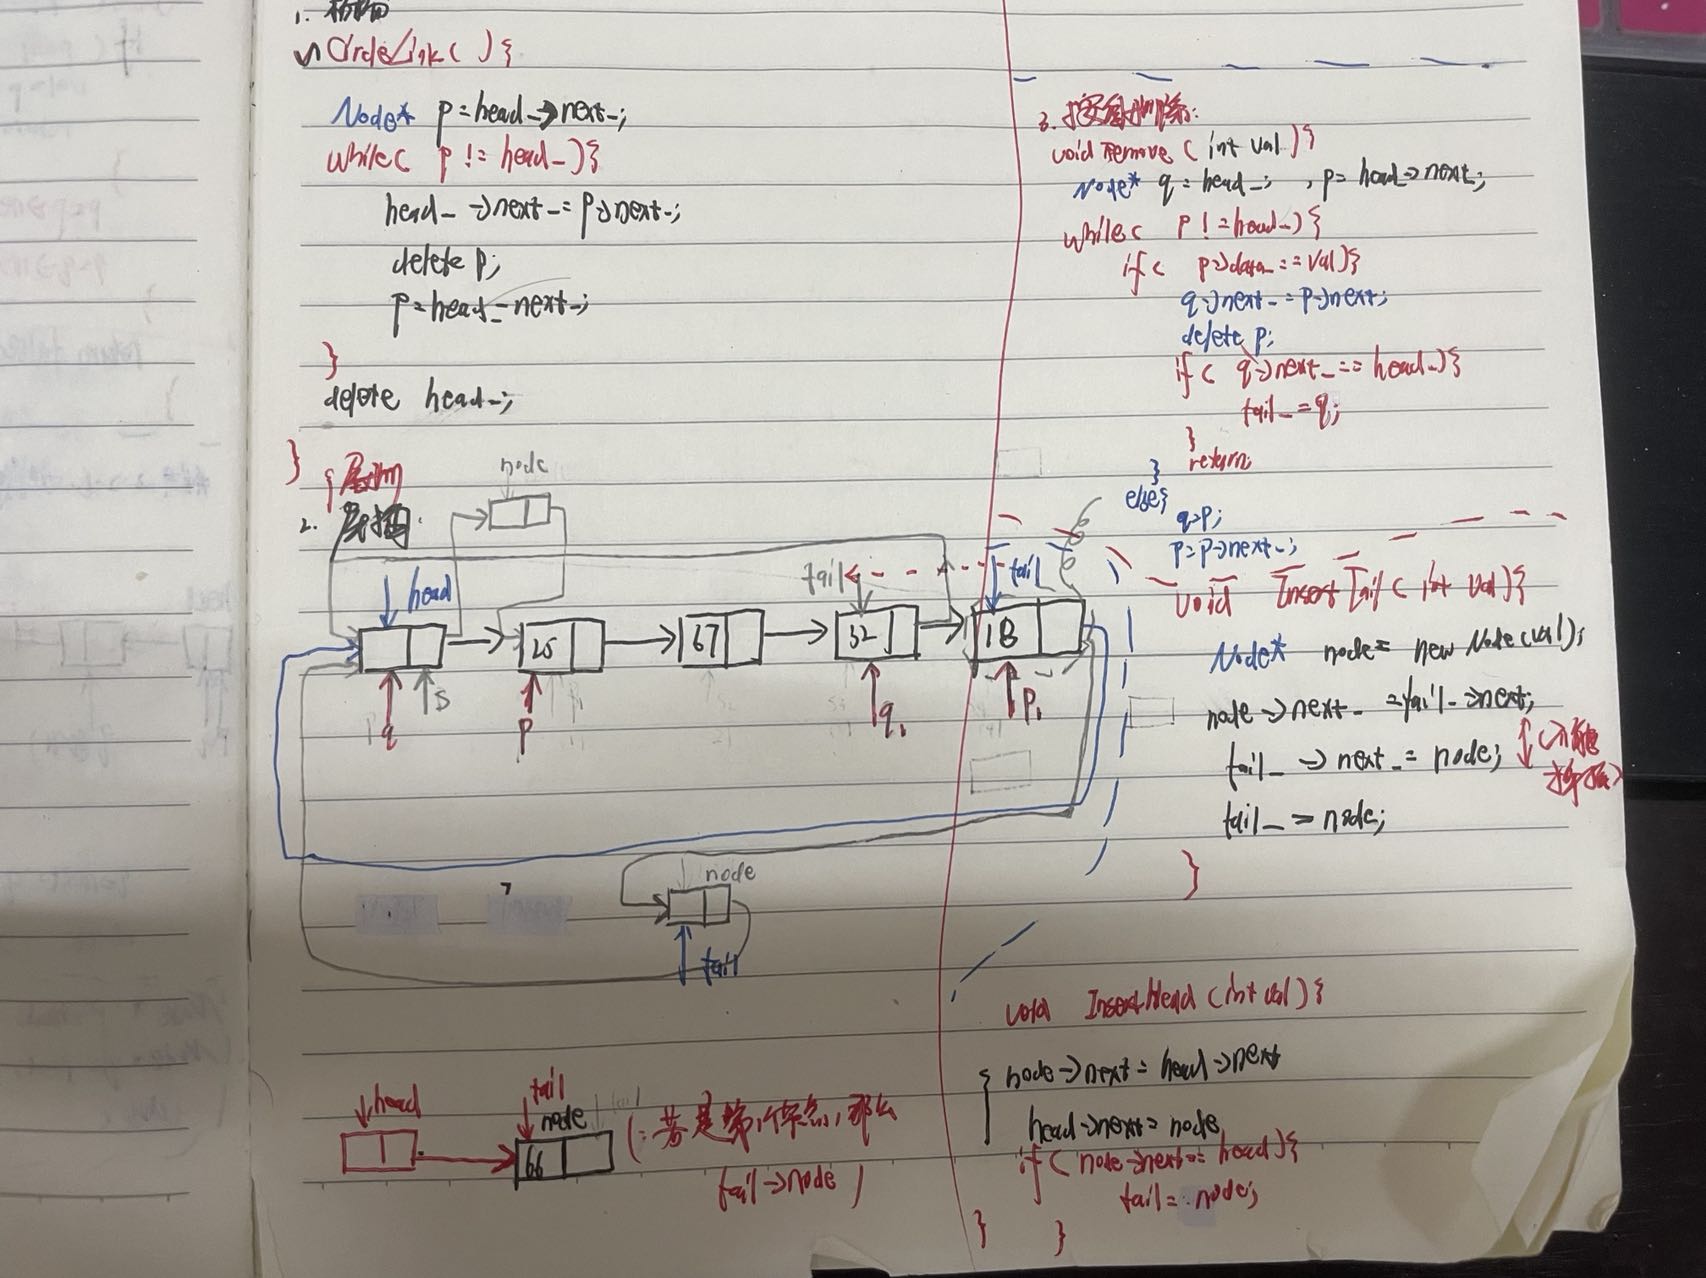 1. 析构
~CircleLink( ){
Node* p=head_->next_;
while( p != head_){
head_ ->next_= p->next_;
delete p;
p=head_-next_;
}
delete head_;
}
2. 尾插:
node
head
tail
tail
25
67
32
18
q
s
p
q₁
P₁
node
tail
head
tail
node
66
(: 若是第1个节点, 那么
tail->node )
3. 按值删除:
void remove ( int val ){
Node* q = head_; , p= head->next_;
while( p != head_){
if( p->data_ == val){
q->next_ = p->next;
delete p;
if( q->next_ == head_){
tail_=q;
}
return;
}
else{
q=p;
p=p->next_;
void InsertTail( int val){
Node* node= new Node(val);
node ->next_ =tail_->next;
tail_ -> next_= node;
tail_ = node;
}
void InsertHead (int val){
node->next = head->next
head->next= node
if( node->next== head){
tail= node;
}
}